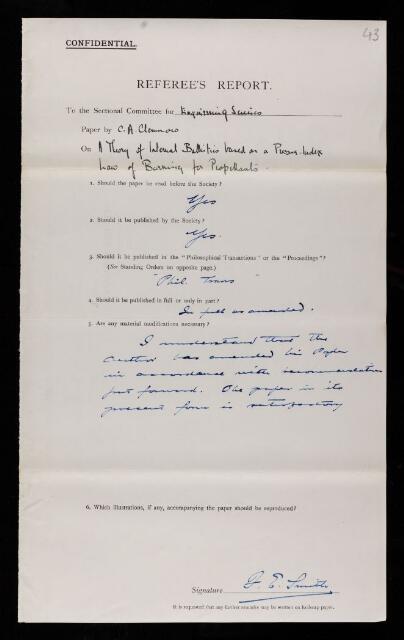 43
CONFIDENTIAL.
REFEREE'S REPORT.
To the Sectional Committee for Engineering Sciences
Paper by C. A. Clemmow
On A Theory of Internal Ballistics based on a Pressure-Index
Law of Burning for Propellants.
1. Should the paper be read before the Society?
Yes
2. Should it be published by the Society?
Yes.
3. Should it be published in the "Philosophical Transactions" or the "Proceedings"?
(See Standing Orders on opposite page.)
"Phil. Trans"
4. Should it be published in full or only in part?
In full as amended.
5. Are any material modifications necessary?
I understand that the
author has amended his paper
in accordance with recommendations
put forward. The paper in its
present form is satisfactory
6. Which illustrations, if any, accompanying the paper should be reproduced?
Signature F. E. Smith
It is requested that any further remarks may be written on foolscap paper.